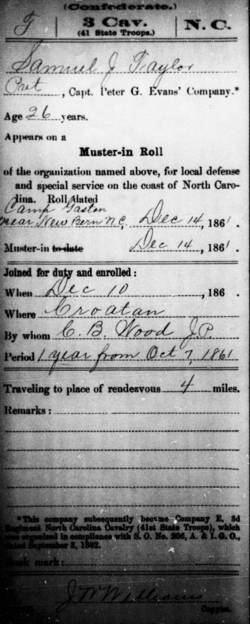 (Confederate.)
T 3 Cav. N.C.
(41 State Troops.)
Samuel J Taylor
Pvt, Capt. Peter G. Evans' Company.*
Age 26 years.
Appears on a
Muster-in Roll
of the organization named above, for local defense
and special service on the coast of North Caro-
lina. Roll dated
Camp Gaston
near New Bern N.C, Dec 14, 1861
Muster-in to date Dec 14, 1861
Joined for duty and enrolled:
When Dec 10, 186 .
Where Croatan
By whom C. B. Wood J.P.
Period 1 year from Oct 7, 1861
Traveling to place of rendezvous 4 miles.
Remarks:
*This company subsequently became Company E, 3d
Regiment North Carolina Cavalry (41st State Troops), which
was organized in compliance with S. O. No. 206, A. & I. G. O.,
dated September 3, 1862.
Book mark:
J W Williams
Copyist.